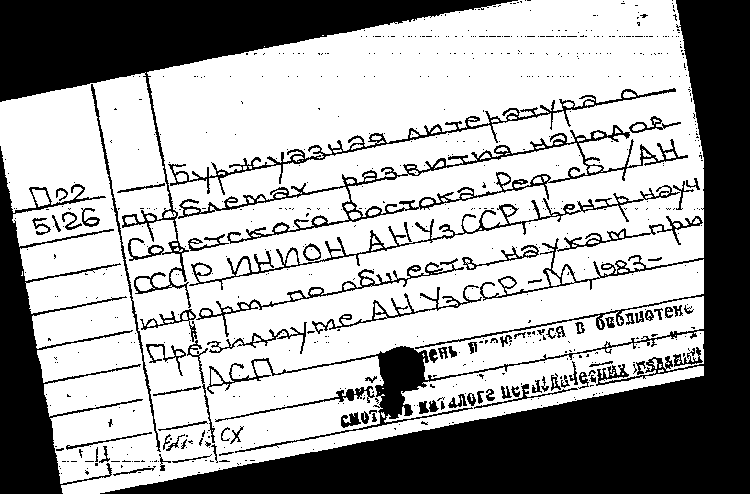 Буржуазная литература о
Пог
проблемах развития народов
5126
Советского Востока: Реф. сб. /АН
СССР, ИНИОН, АН УзССР, Центр науч.
информ. по обществ. наукам при
Президиуме АН УзССР. -М., 1983-
ДСП.
в библиотеке
смотри в каталоге периодических изданий
СХ